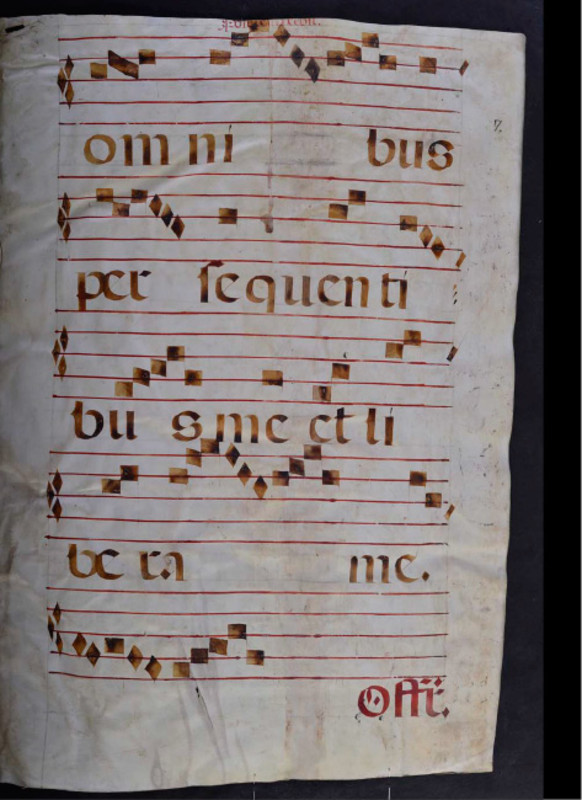 om ni bus
per sequenti
bu s me et li
be ra me.
Offr.